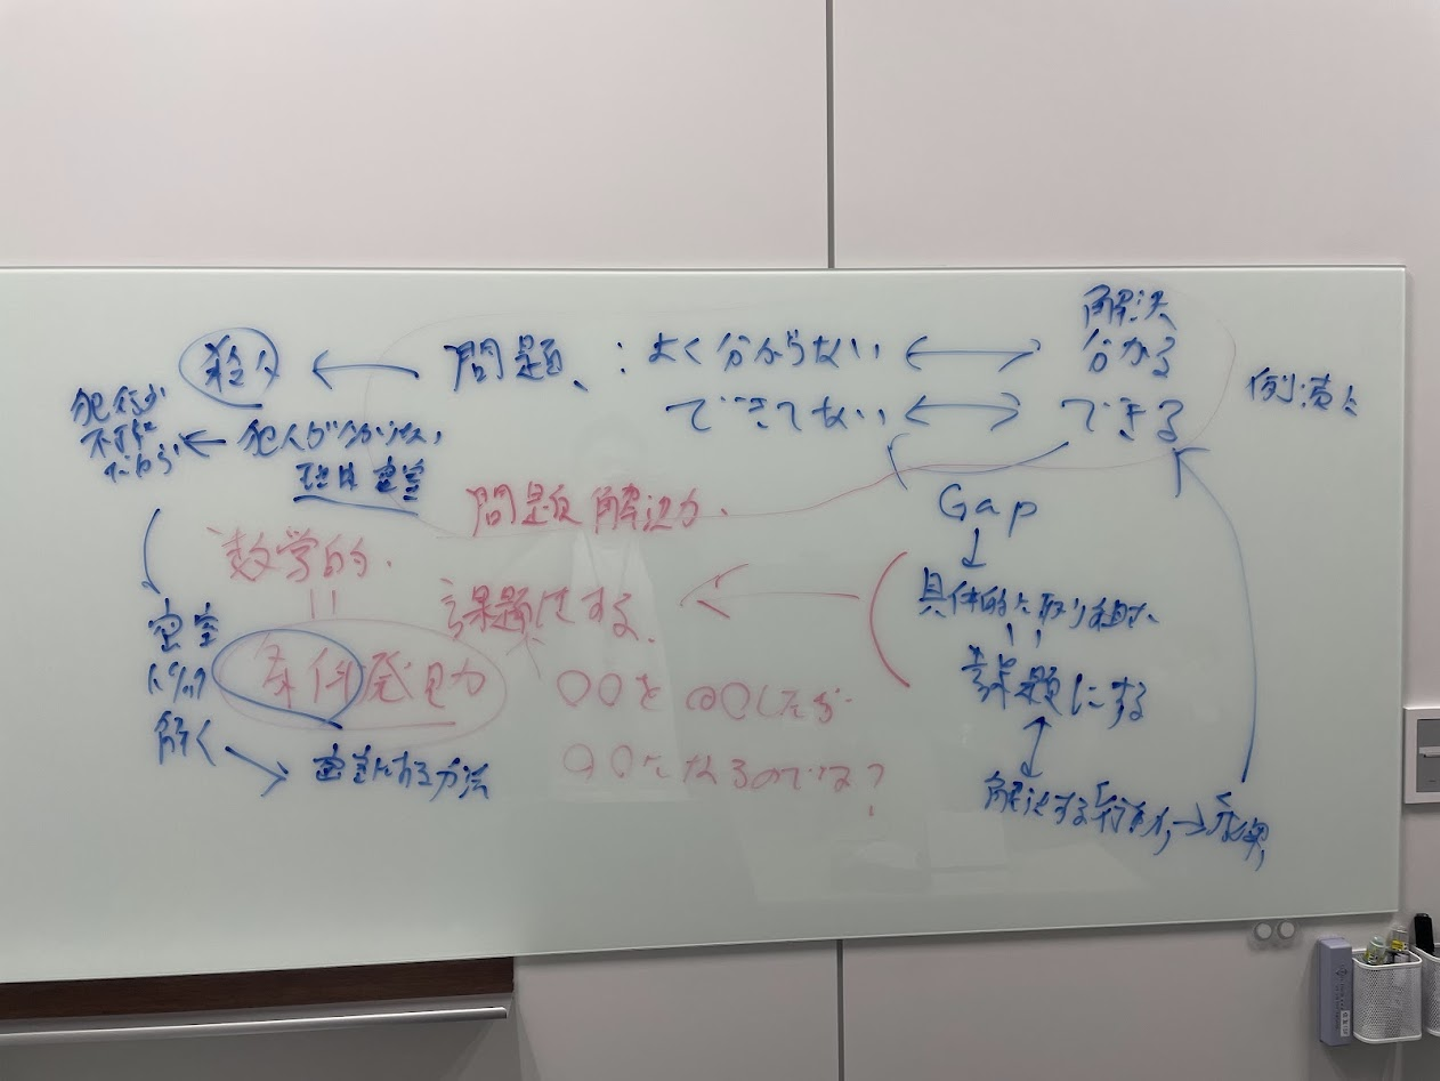 解決
殺人 ← 問題、: よく分からない ↔ 分かる
できてない ↔ できる
犯行が
不可能
だから ← 犯人が分からない
密室
Gap
問題解決力
数学的
||
課題にする
具体的に取り組む
||
課題にする
密室
解く
条件発見力
〇〇を〇〇したが
〇〇になるのでは?
密室にする方法
解決する行動 →